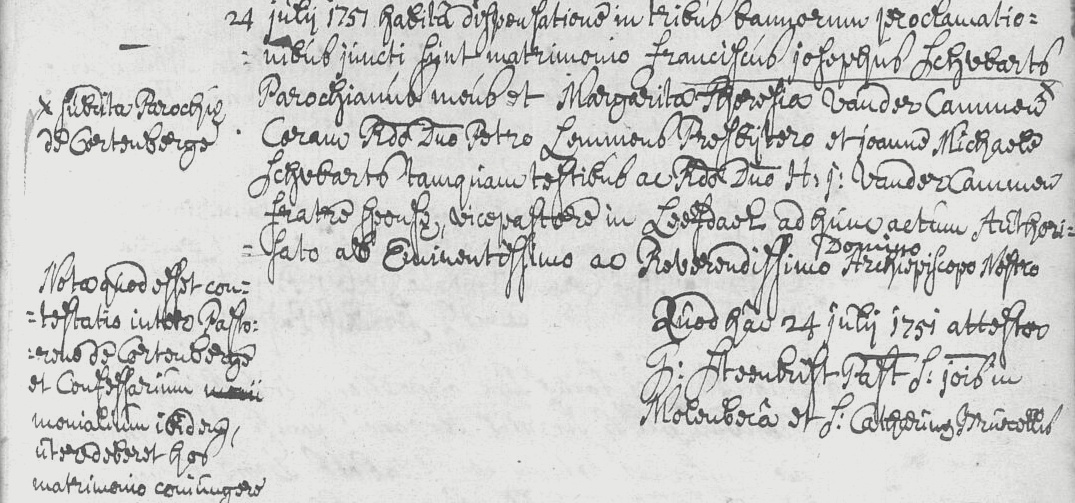 24 julij 1751 habitâ dispensatione in tribus bannorum proclamatio=
=nibus juncti sunt matrimonio franciscus josephus Schobarts
Parochianus meus et Margarita Theresia Vander Cammen x
Coram Rdo Dno Petro Lemmens Presbytero et joanne Michaele
Schobarts tamquam testibus ac Rdo Dno H: j: Vander Cammen
fratre sponsæ, vicepastore in Leefdael ad hunc actum Authori=
=sato ab Eminentissimo ac Reverendissimo Domino Archiepiscopo Nostro
Quod hâc 24 julij 1751 attestor
Past S: jois in
Molenbeca et S: Catharinæ Bruxellis
x subdita Parochiæ
de Cortenberge
Nota quod esset con-
-testatio inter Pasto:
-rem de Cortenberge
et Confessarium
monialium ibidem,
uter deberet hos
matrimonio conjungere